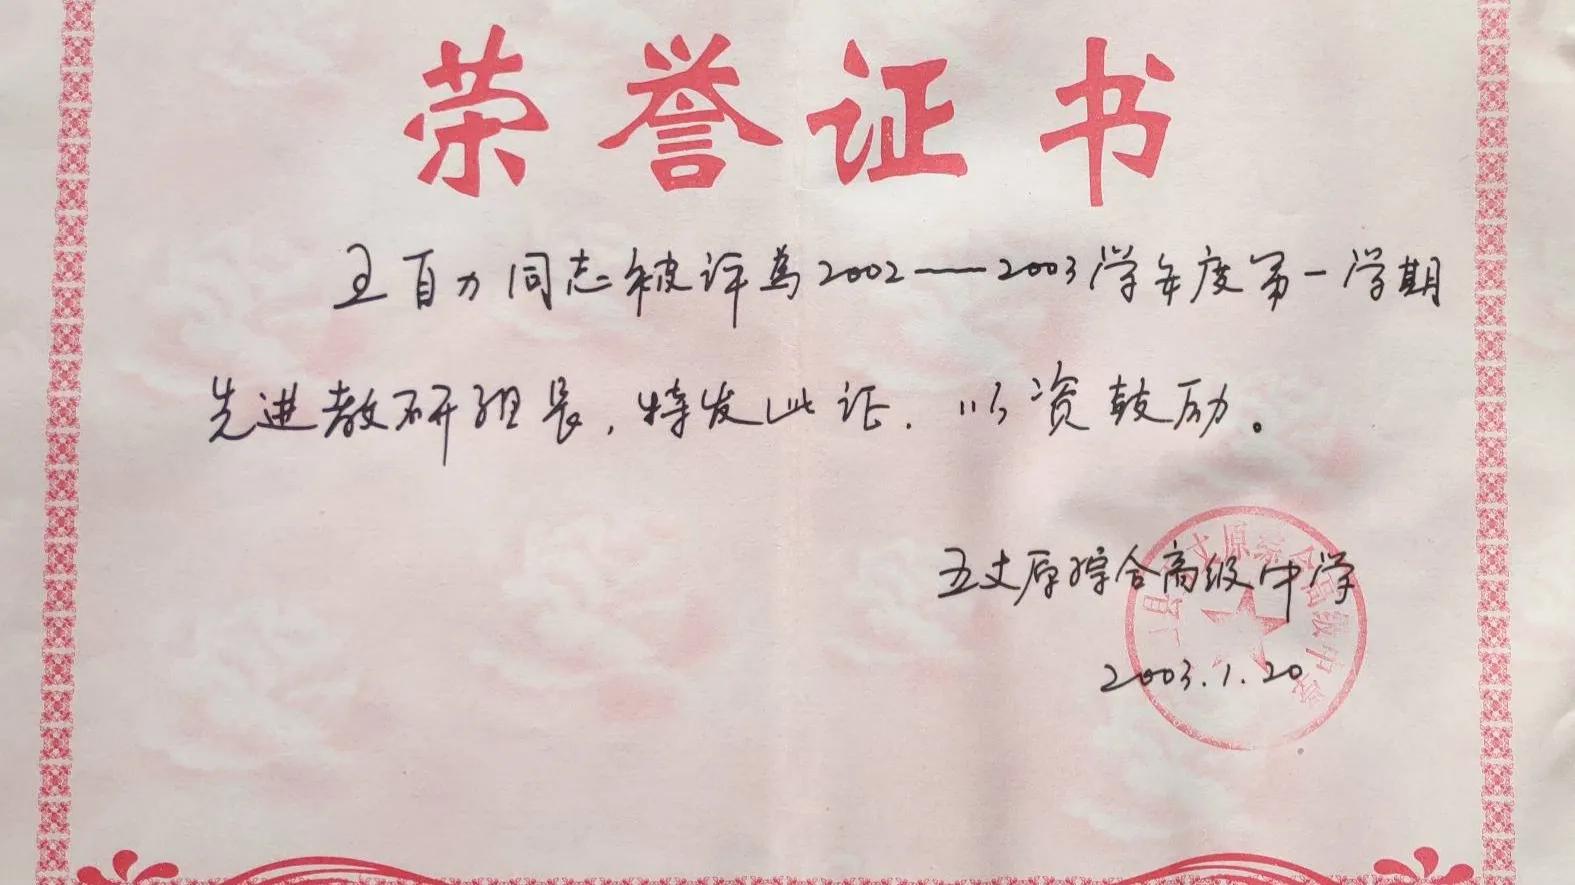 荣誉证书
王百力同志被评为2002——2003学年度第一学期
先进教研组长,特发此证,以资鼓励。
五丈原综合高级中学
2003.1.20
丈原综合高级中学